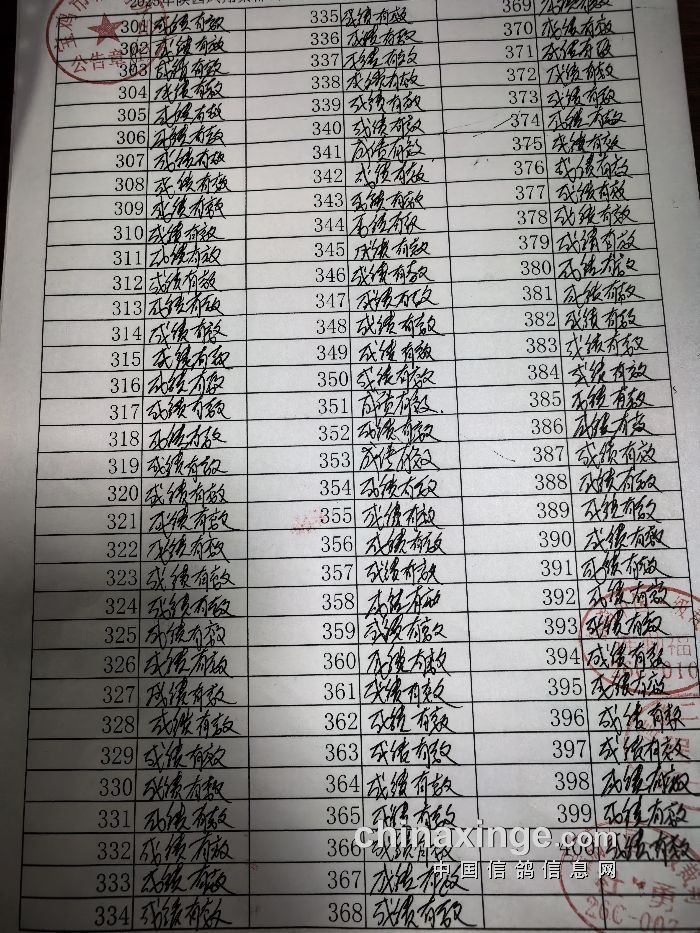 宝鸡市
公告章
301 成绩有效
302 成绩有效
303 成绩有效
304 成绩有效
305 成绩有效
306 成绩有效
307 成绩有效
308 成绩有效
309 成绩有效
310 成绩有效
311 成绩有效
312 成绩有效
313 成绩有效
314 成绩有效
315 成绩有效
316 成绩有效
317 成绩有效
318 成绩有效
319 成绩有效
320 成绩有效
321 成绩有效
322 成绩有效
323 成绩有效
324 成绩有效
325 成绩有效
326 成绩有效
327 成绩有效
328 成绩有效
329 成绩有效
330 成绩有效
331 成绩有效
332 成绩有效
333 成绩有效
334 成绩有效
335 成绩有效
336 成绩有效
337 成绩有效
338 成绩有效
339 成绩有效
340 成绩有效
341 成绩有效
342 成绩有效
343 成绩有效
344 成绩有效
345 成绩有效
346 成绩有效
347 成绩有效
348 成绩有效
349 成绩有效
350 成绩有效
351 成绩有效
352 成绩有效
353 成绩有效
354 成绩有效
355 成绩有效
356 成绩有效
357 成绩有效
358 成绩有效
359 成绩有效
360 成绩有效
361 成绩有效
362 成绩有效
363 成绩有效
364 成绩有效
365 成绩有效
366 成绩有效
367 成绩有效
368 成绩有效
369 成绩有效
370 成绩有效
371 成绩有效
372 成绩有效
373 成绩有效
374 成绩有效
375 成绩有效
376 成绩有效
377 成绩有效
378 成绩有效
379 成绩有效
380 成绩有效
381 成绩有效
382 成绩有效
383 成绩有效
384 成绩有效
385 成绩有效
386 成绩有效
387 成绩有效
388 成绩有效
389 成绩有效
390 成绩有效
391 成绩有效
392 成绩有效
393 成绩有效
394 成绩有效
395 成绩有效
396 成绩有效
397 成绩有效
398 成绩有效
399 成绩有效
400 成绩有效
chinaxinge.com
中国信鸽信息网